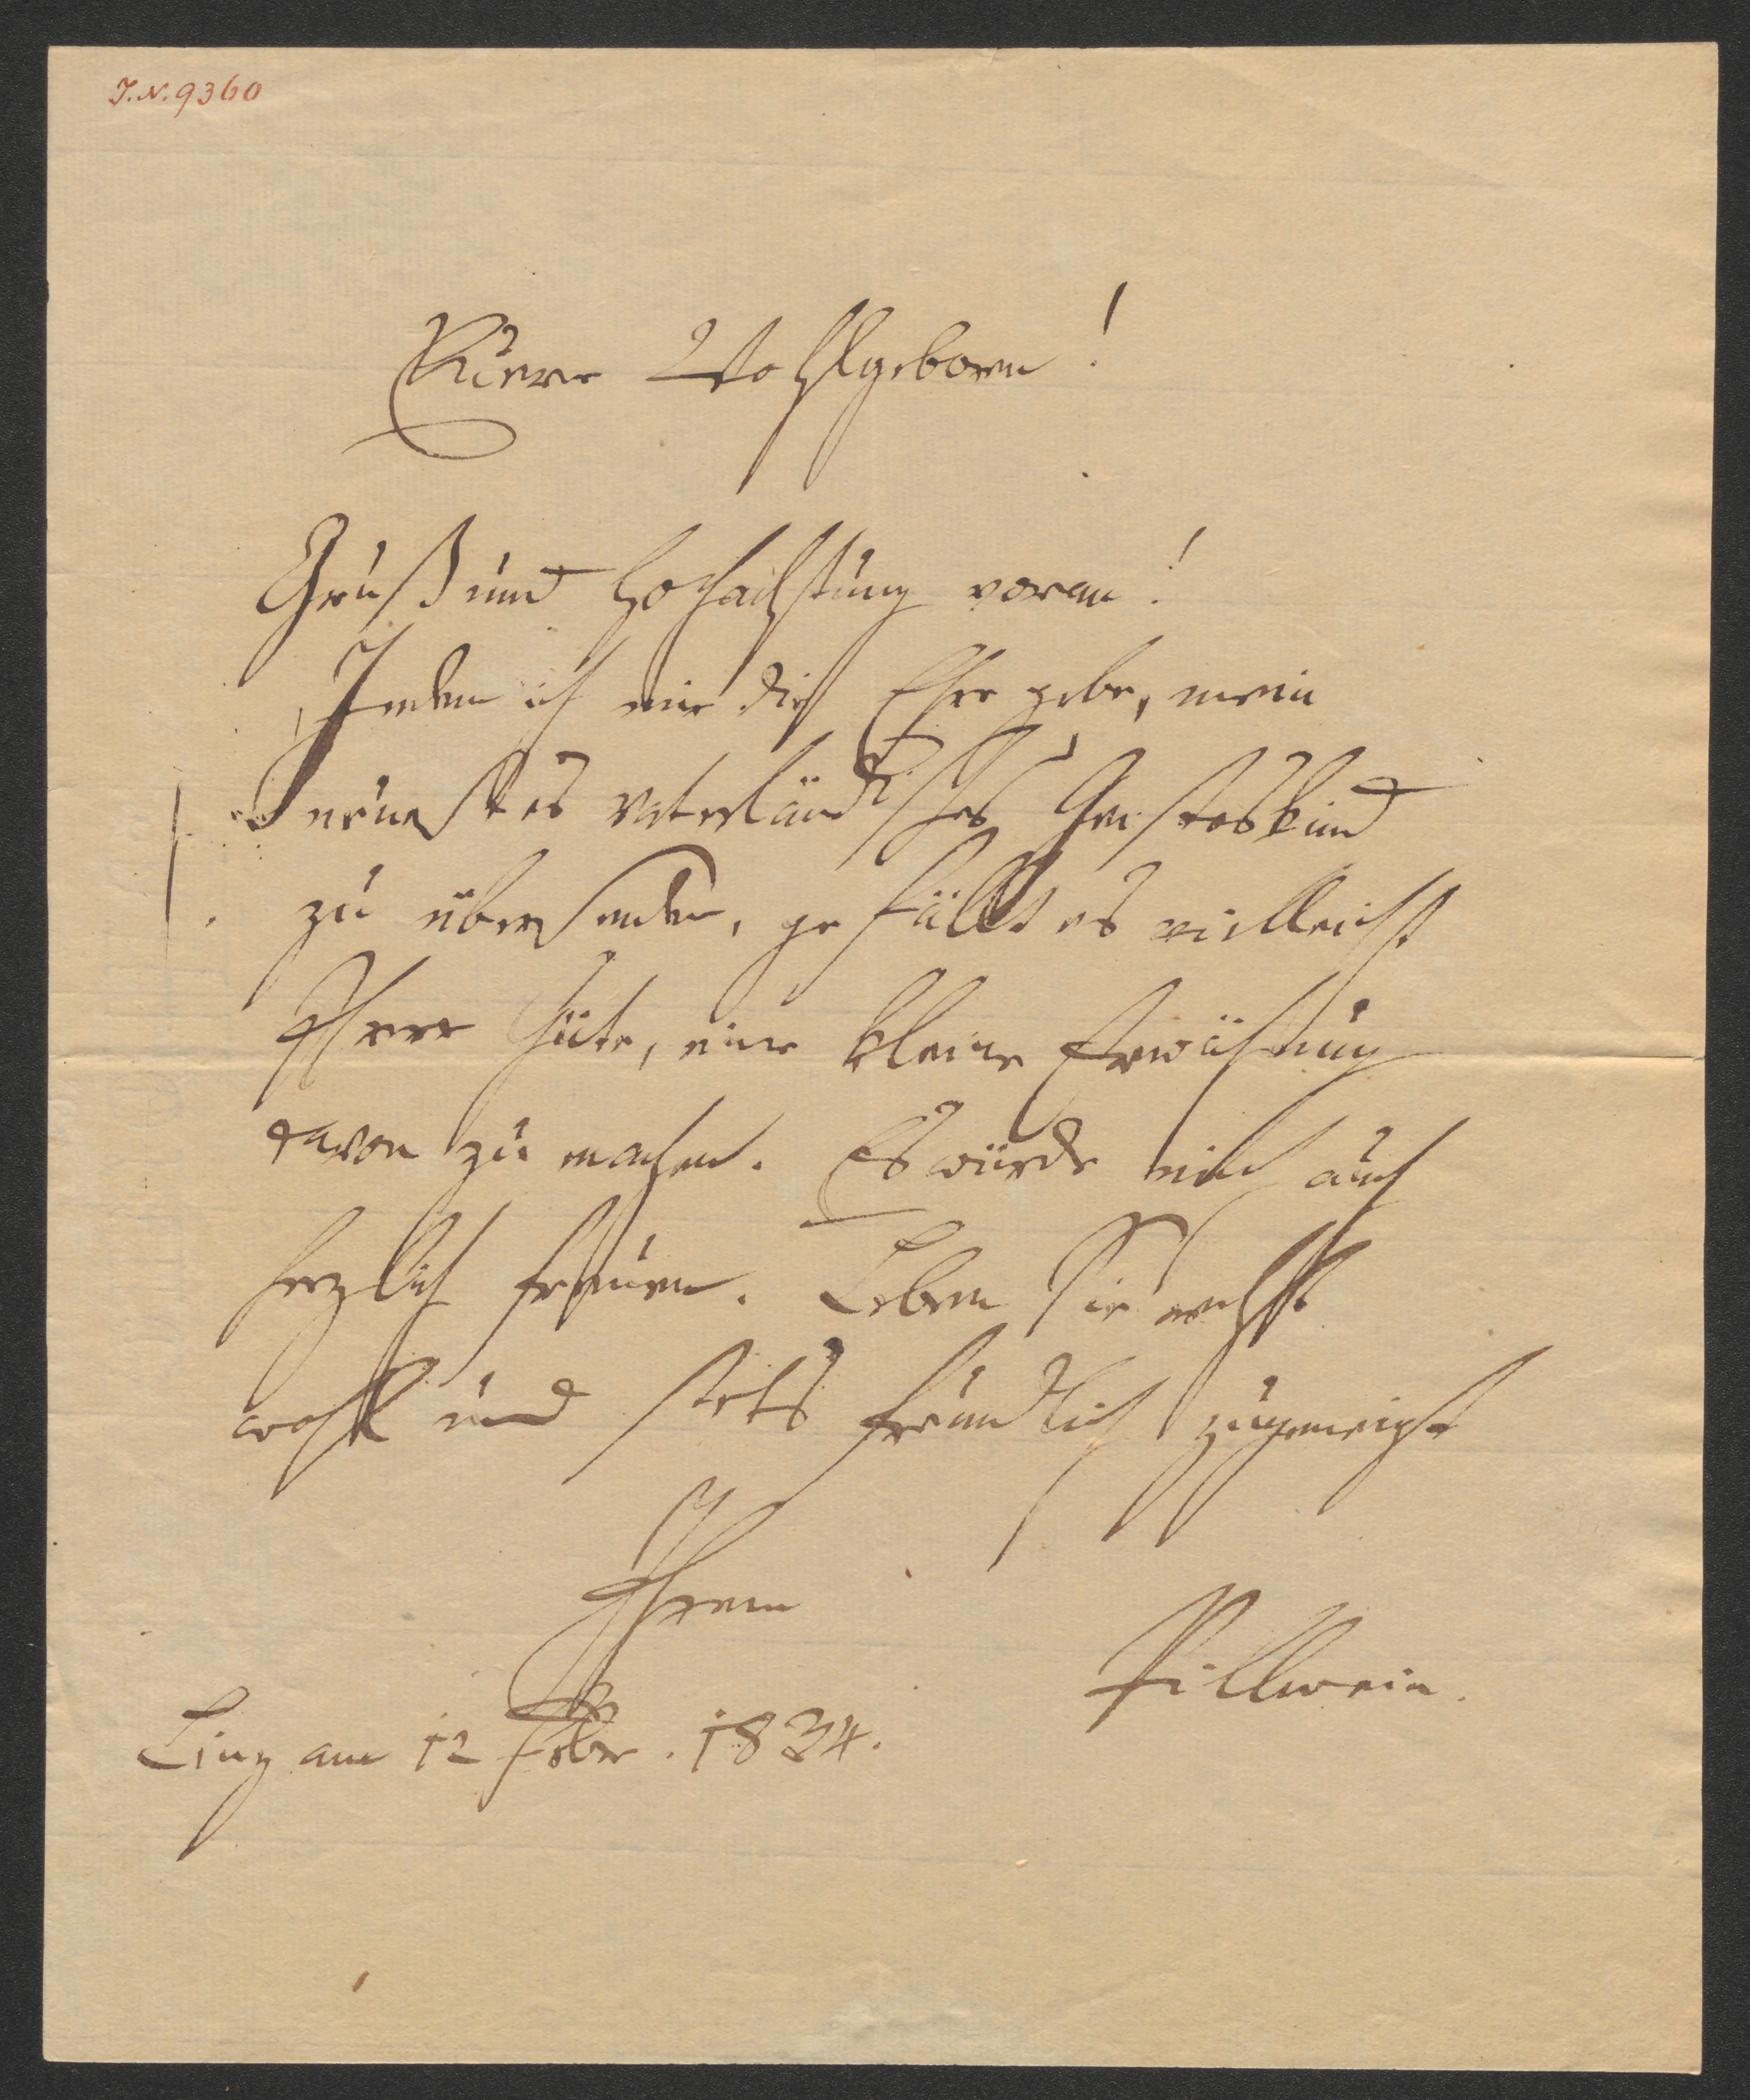 I.N. 9360
Euere Wohlgeboren!
Gruß und Hochachtung voran!
Indem ich mir die Ehre gebe, mein
neuestes vaterländisches Geisteskind
zu übersenden, gefällt es vielleicht
Ihrer Güte, eine kleine Erwähnung
davon zu machen. Es würde mich auch
herzlich freuen. Leben Sie recht
wohl und stets freundlich zugeneigt
Ihrem
Pillwein.
Linz am 12 Febr. 1834.